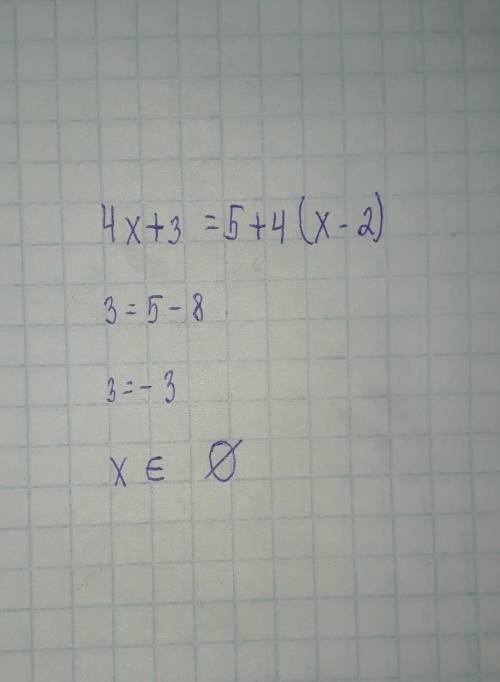 4x+3 = 5+4(x-2)
3 = 5 - 8
3 = - 3
x ∈ ∅